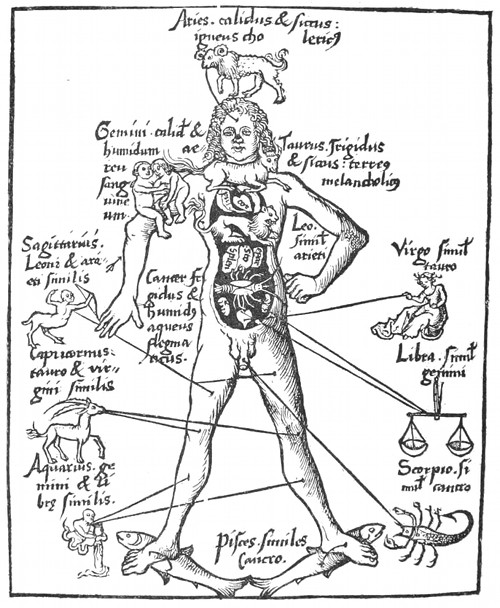 Aries . calidus & siccus :
igneus cho lericꝰ
Gemini . calid &
humidum ae
reu
sang
uine
um
Taurus . frigidus
& siccus : terreꝰ
melancholicꝰ
Leo .
simil
arieti
Sagittarius .
Leoni & ari=
eti similis
Cancer fri
gidus &
humidꝰ
aqueus
flegma
ticus .
Virgo simil
tauro
Capricornus :
tauro & vir=
gini similis
Libra . simil
gemini
Aquarius . ge
mini & li
bre similis .
Scorpio . si
mil cancro
Pisces . similes
Cancro .